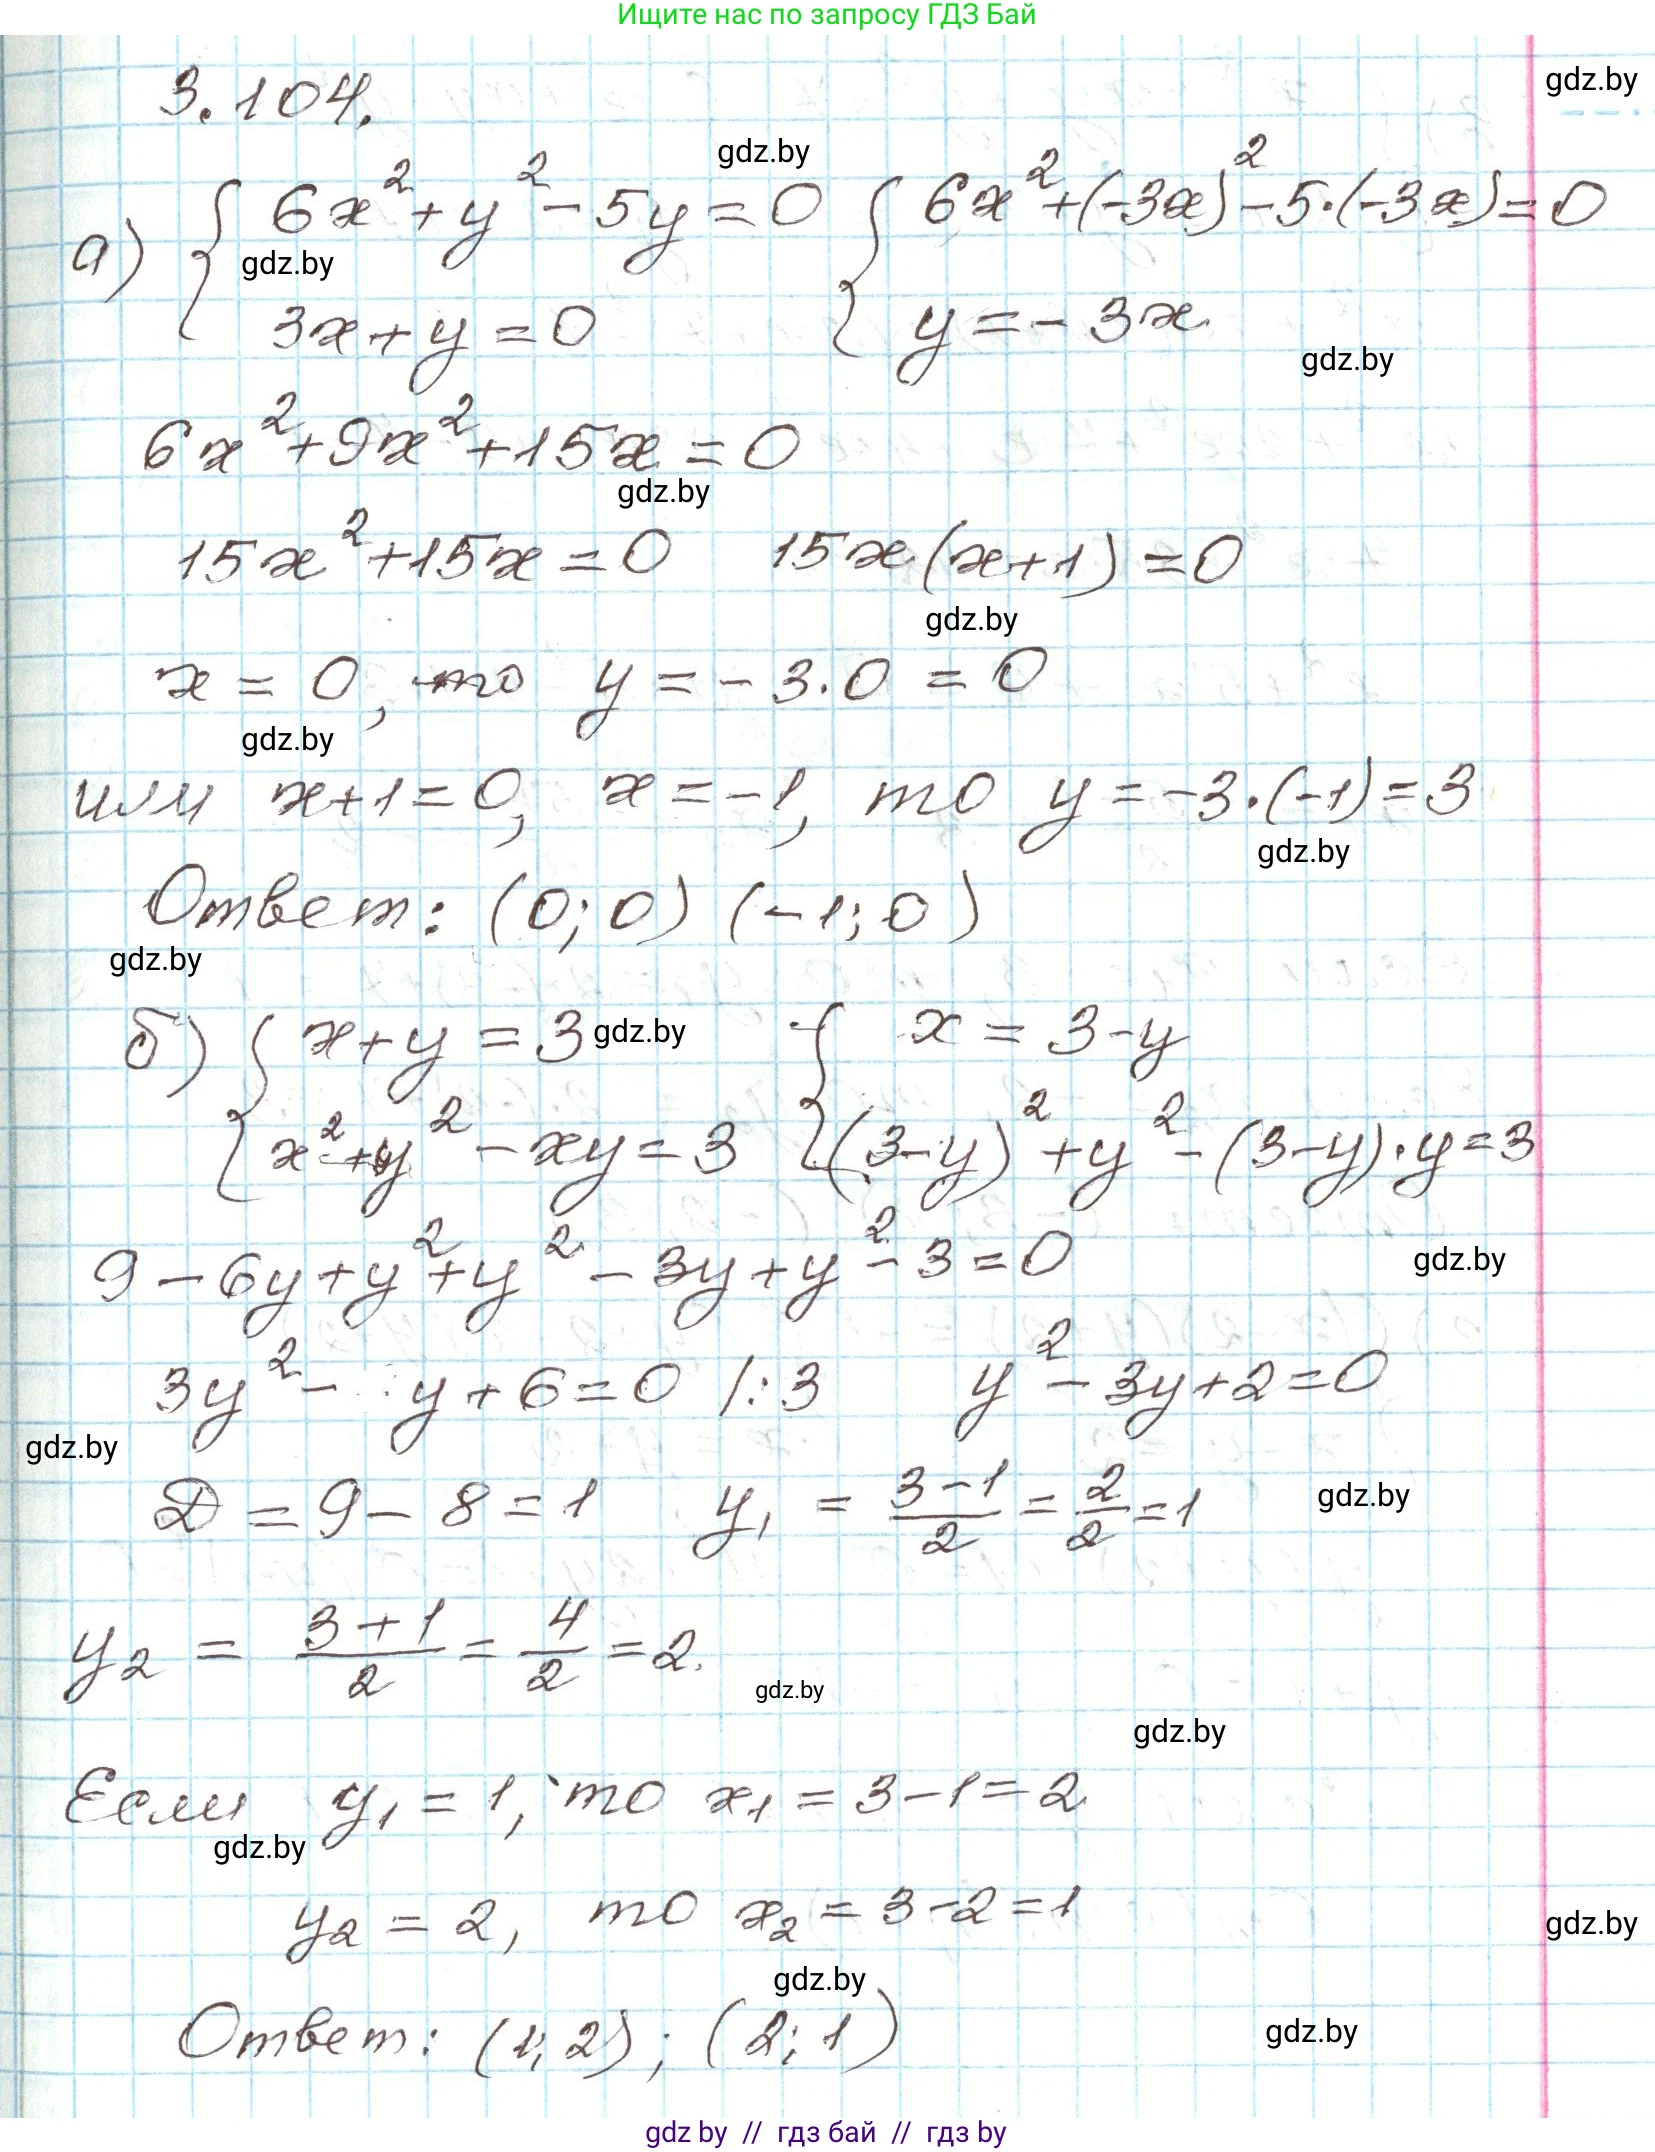 Ищите нас по запросу ГДЗ Бай
gdz.by
3.104.
gdz.by
а) { 6x² + y² - 5y = 0 { 6x² + (-3x)² - 5·(-3x) = 0
gdz.by
3x + y = 0 y = -3x
gdz.by
6x² + 9x² + 15x = 0
gdz.by
15x² + 15x = 0 15x(x+1) = 0
gdz.by
x = 0, то y = -3·0 = 0
gdz.by
или x+1 = 0, x = -1, то y = -3·(-1) = 3
gdz.by
Ответ: (0; 0) (-1; 0)
gdz.by
б) { x + y = 3 { x = 3-y
gdz.by
x² + y² - xy = 3 (3-y)² + y² - (3-y)·y = 3
9 - 6y + y² + y² - 3y + y² - 3 = 0
gdz.by
3y² - y + 6 = 0 /:3 y² - 3y + 2 = 0
gdz.by
D = 9 - 8 = 1 y₁ = (3-1)/2 = 2/2 = 1
gdz.by
y₂ = (3+1)/2 = 4/2 = 2.
gdz.by
gdz.by
Если y₁ = 1, то x₁ = 3-1 = 2
gdz.by
y₂ = 2, то x₂ = 3-2 = 1
gdz.by
gdz.by
Ответ: (1; 2); (2; 1)
gdz.by
gdz by // гдз бай // гдз by